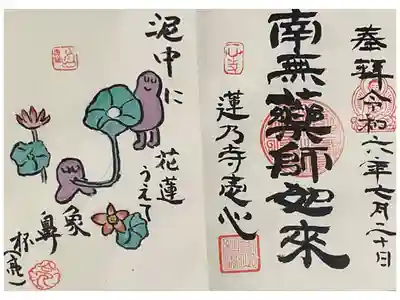 奉拝 令和六年七月二十日
南無藥師如來
蓮乃寺
泥中に
花蓮
うえる
象
鼻
杯